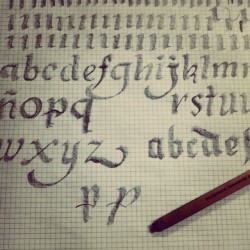 abcdefghijklmn
ñopq rstu
wxyz abcdef
p p